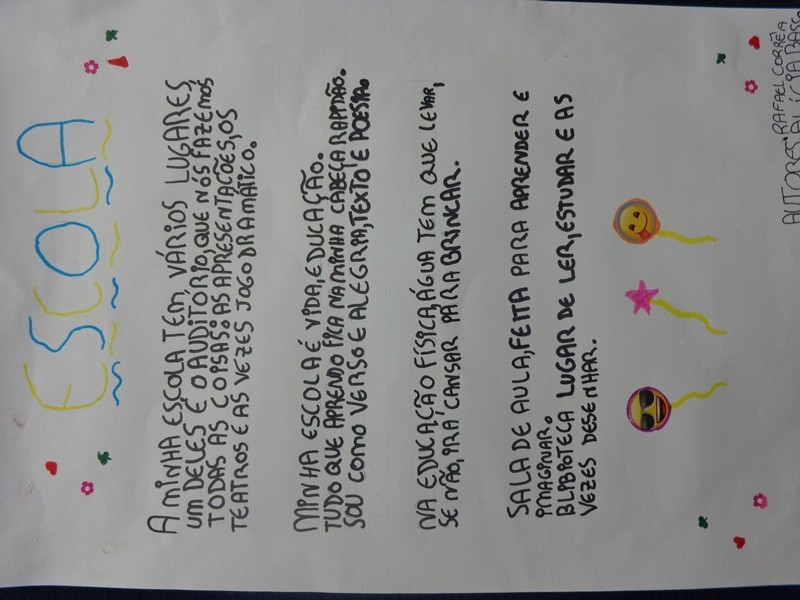 ESCOLA
A MINHA ESCOLA TEM VÁRIOS LUGARES,
UM DELES É O AUDITÓRIO, QUE NÓS FAZEMOS
TODAS AS COISAS: AS APRESENTAÇÕES, OS
TEATROS E AS VEZES JOGO DRAMÁTICO.
MINHA ESCOLA É VIDA, EDUCAÇÃO.
TUDO QUE APRENDO FICA NA MINHA CABEÇA RAPIDÃO.
SOU COMO VERSO E ALEGRIA, TEXTO E POESIA.
NA EDUCAÇÃO FÍSICA, ÁGUA TEM QUE LEVAR,
SE NÃO, IRÁ CANSAR PARA BRINCAR.
SALA DE AULA, FEITA PARA APRENDER E
IMAGINAR.
BLIBIOTECA LUGAR DE LER, ESTUDAR E AS
VEZES DESENHAR.
AUTORES: RAFAEL CORRÊA